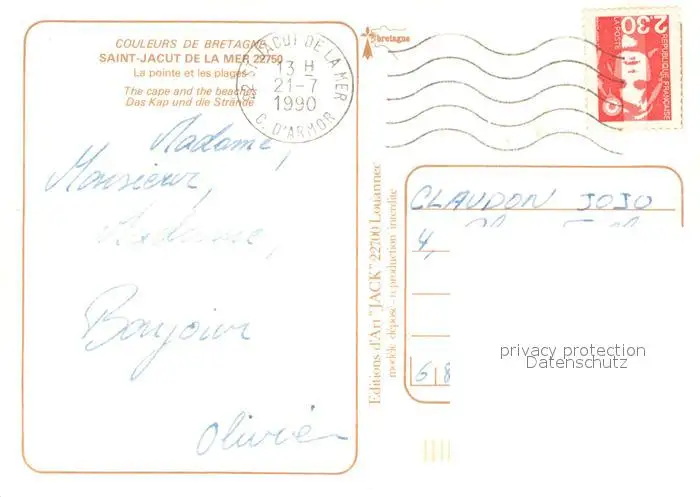 COULEURS DE BRETAGNE
SAINT-JACUT DE LA MER 22750
La pointe et les plages
The cape and the beaches
Das Kap und die Strände
ST JACUT DE LA MER
13 H
21-7
1990
C. D'ARMOR
bretagne
2,30
LA POSTE
REPUBLIQUE FRANÇAISE
Madame,
Monsieur,
Madame,
Bonjour
Olivier
Editions d'Art "JACK" 22700 Louannec
modèle déposé - reproduction interdite
CLAUDON JOJO
4,
68
privacy protection
Datenschutz